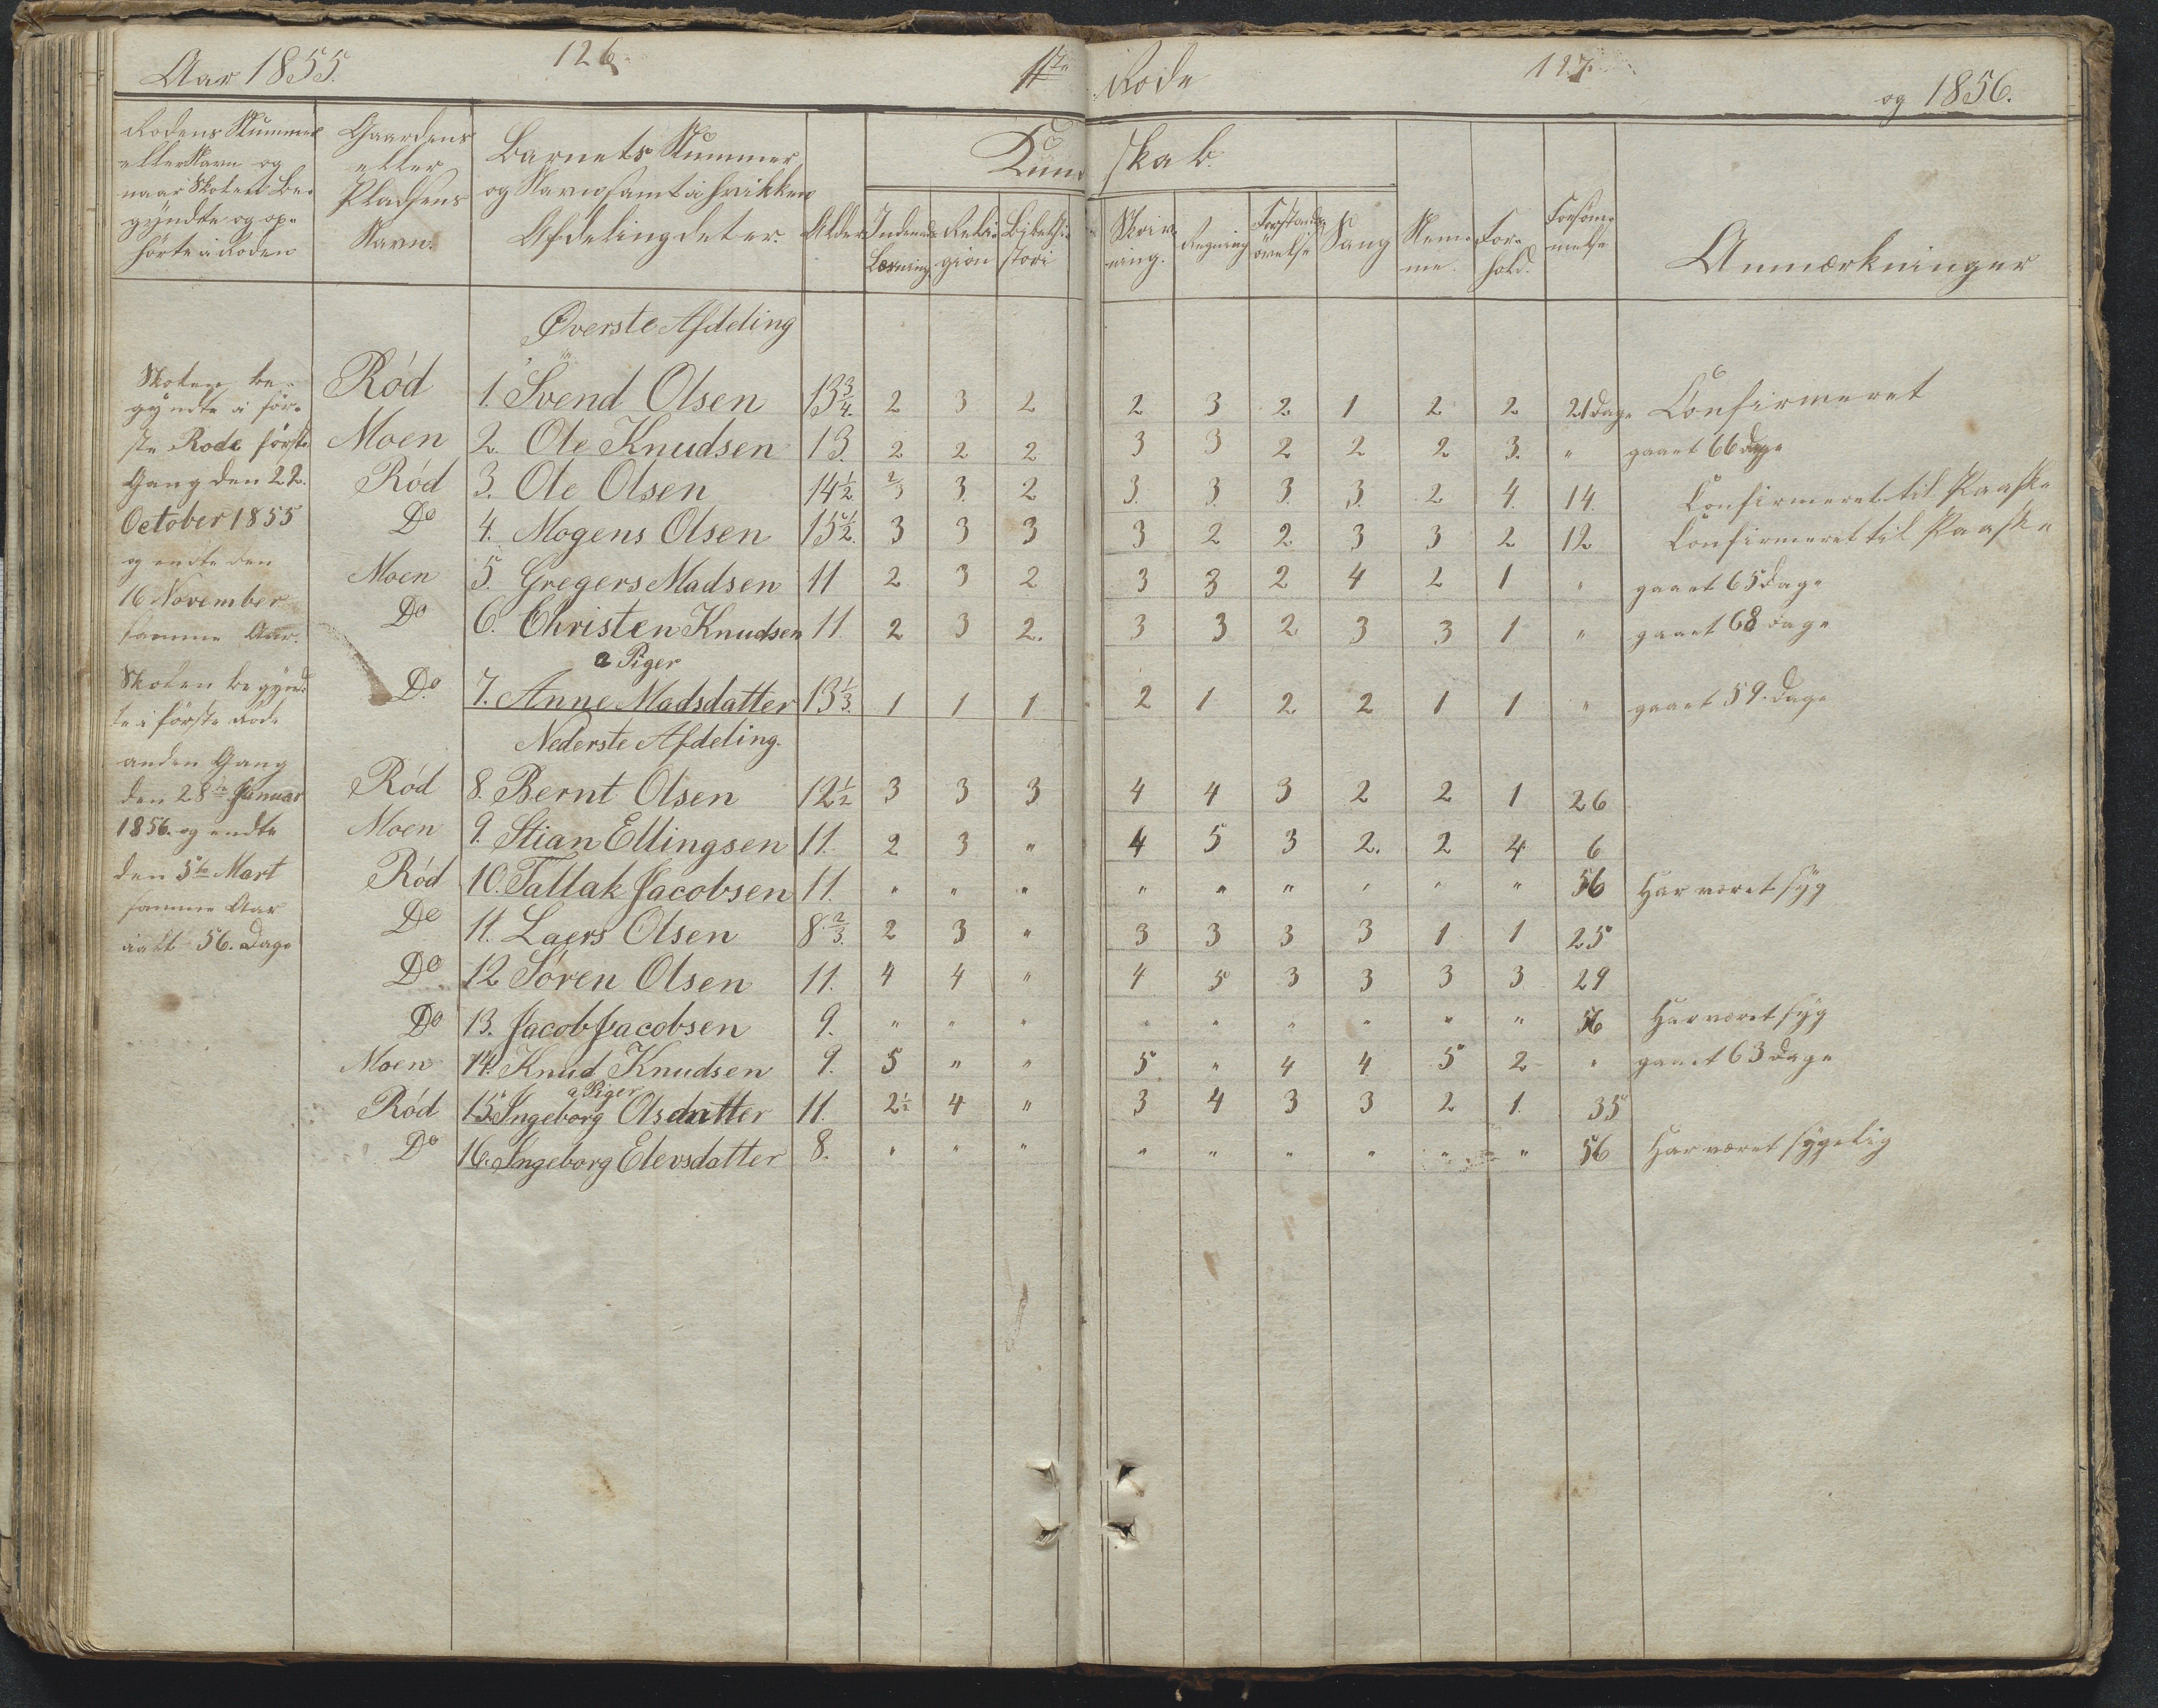 Aar 1855. 126. 1ste Rode 127. og 1856.
Rodens Nummer
eller Navn og
naar Skolen be-
gyndte og op-
hørte i Roden
Gaardens
eller
Pladsens
Navn.
Barnets Nummer
og Navn samt i hvilken
Afdeling det er.
Alder
Kundskab.
Indenads
Læsning
Reli-
gion
Bibelhi-
stori
Skriv-
ning.
Regning
Forstands-
øvelse
Sang
Nem-
me.
For-
hold.
Forsøm-
melse
Anmærkninger
Øverste Afdeling
Skolen be-
gyndte i før-
ste Rode første
Gang den 22.
October 1855
og endte den
16 November
samme Aar.
Skolen begynd-
te i første Rode
anden Gang
den 28de Januar
1856. og endte
den 5te Mart
samme Aar
ialt 56. Dage
Ród 1. Svend Olsen 13 3/4. 2 3 2 2 3 2 1 2 2 21 Dage Confirmeret
Moen 2. Ole Knudsen 13. 2 2 2 3 3 2 2 2 3. " gaaet 66 Dage
Ród 3. Ole Olsen 14 1/2 2/3 3. 2 3. 3 3 3. 2 4. 14. Confirmeret til Paaske
Do 4. Mogens Olsen 15 1/2. 3 3 3 3 2 2 3 3 2 12 Confirmeret til Paaske
Moen 5. Gregers Madsen 11 2 3 2 3 3 2 4 2 1 " gaaet 65 Dage
Do 6. Christen Knudsen 11. 2 3 2. 3 3 2 3 3 1 " gaaet 68 Dage
a Piger
Do. 7. Anne Madsdatter 13 1/3. 1 1 1 2 1 2 2 1 1 " gaaet 59. Dage
Nederste Afdeling.
Ród 8. Bernt Olsen 12 1/2 3 3 3 4 4 3 2 2 1 26
Moen 9. Stian Ellingsen 11. 2 3 " 4 5 3 2. 2 4 6
Ród 10. Tallak Jacobsen 11. " " " " " " " " " 56 Har været syg
Do 11. Laers Olsen 8 2/3. 2 3 " 3 3 3 3 1 1 25
Do 12 Søren Olsen 11. 4 4 " 4 5 3 3 3 3 29
Do 13. Jacob Jacobsen 9. " " " " " " " " " 56 Har været syg
Moen 14. Knud Knudsen 9. 5 " " 5 " 4 4 5 2 " gaaet 63 Dage
a Piger
Ród 15. Ingeborg Olsdatter 11. 2 1/2 4 " 3 4 3 3 2 1. 35
Do 16. Ingeborg Elevsdatter 8. " " " " " " " " " 56 Har været sygelig